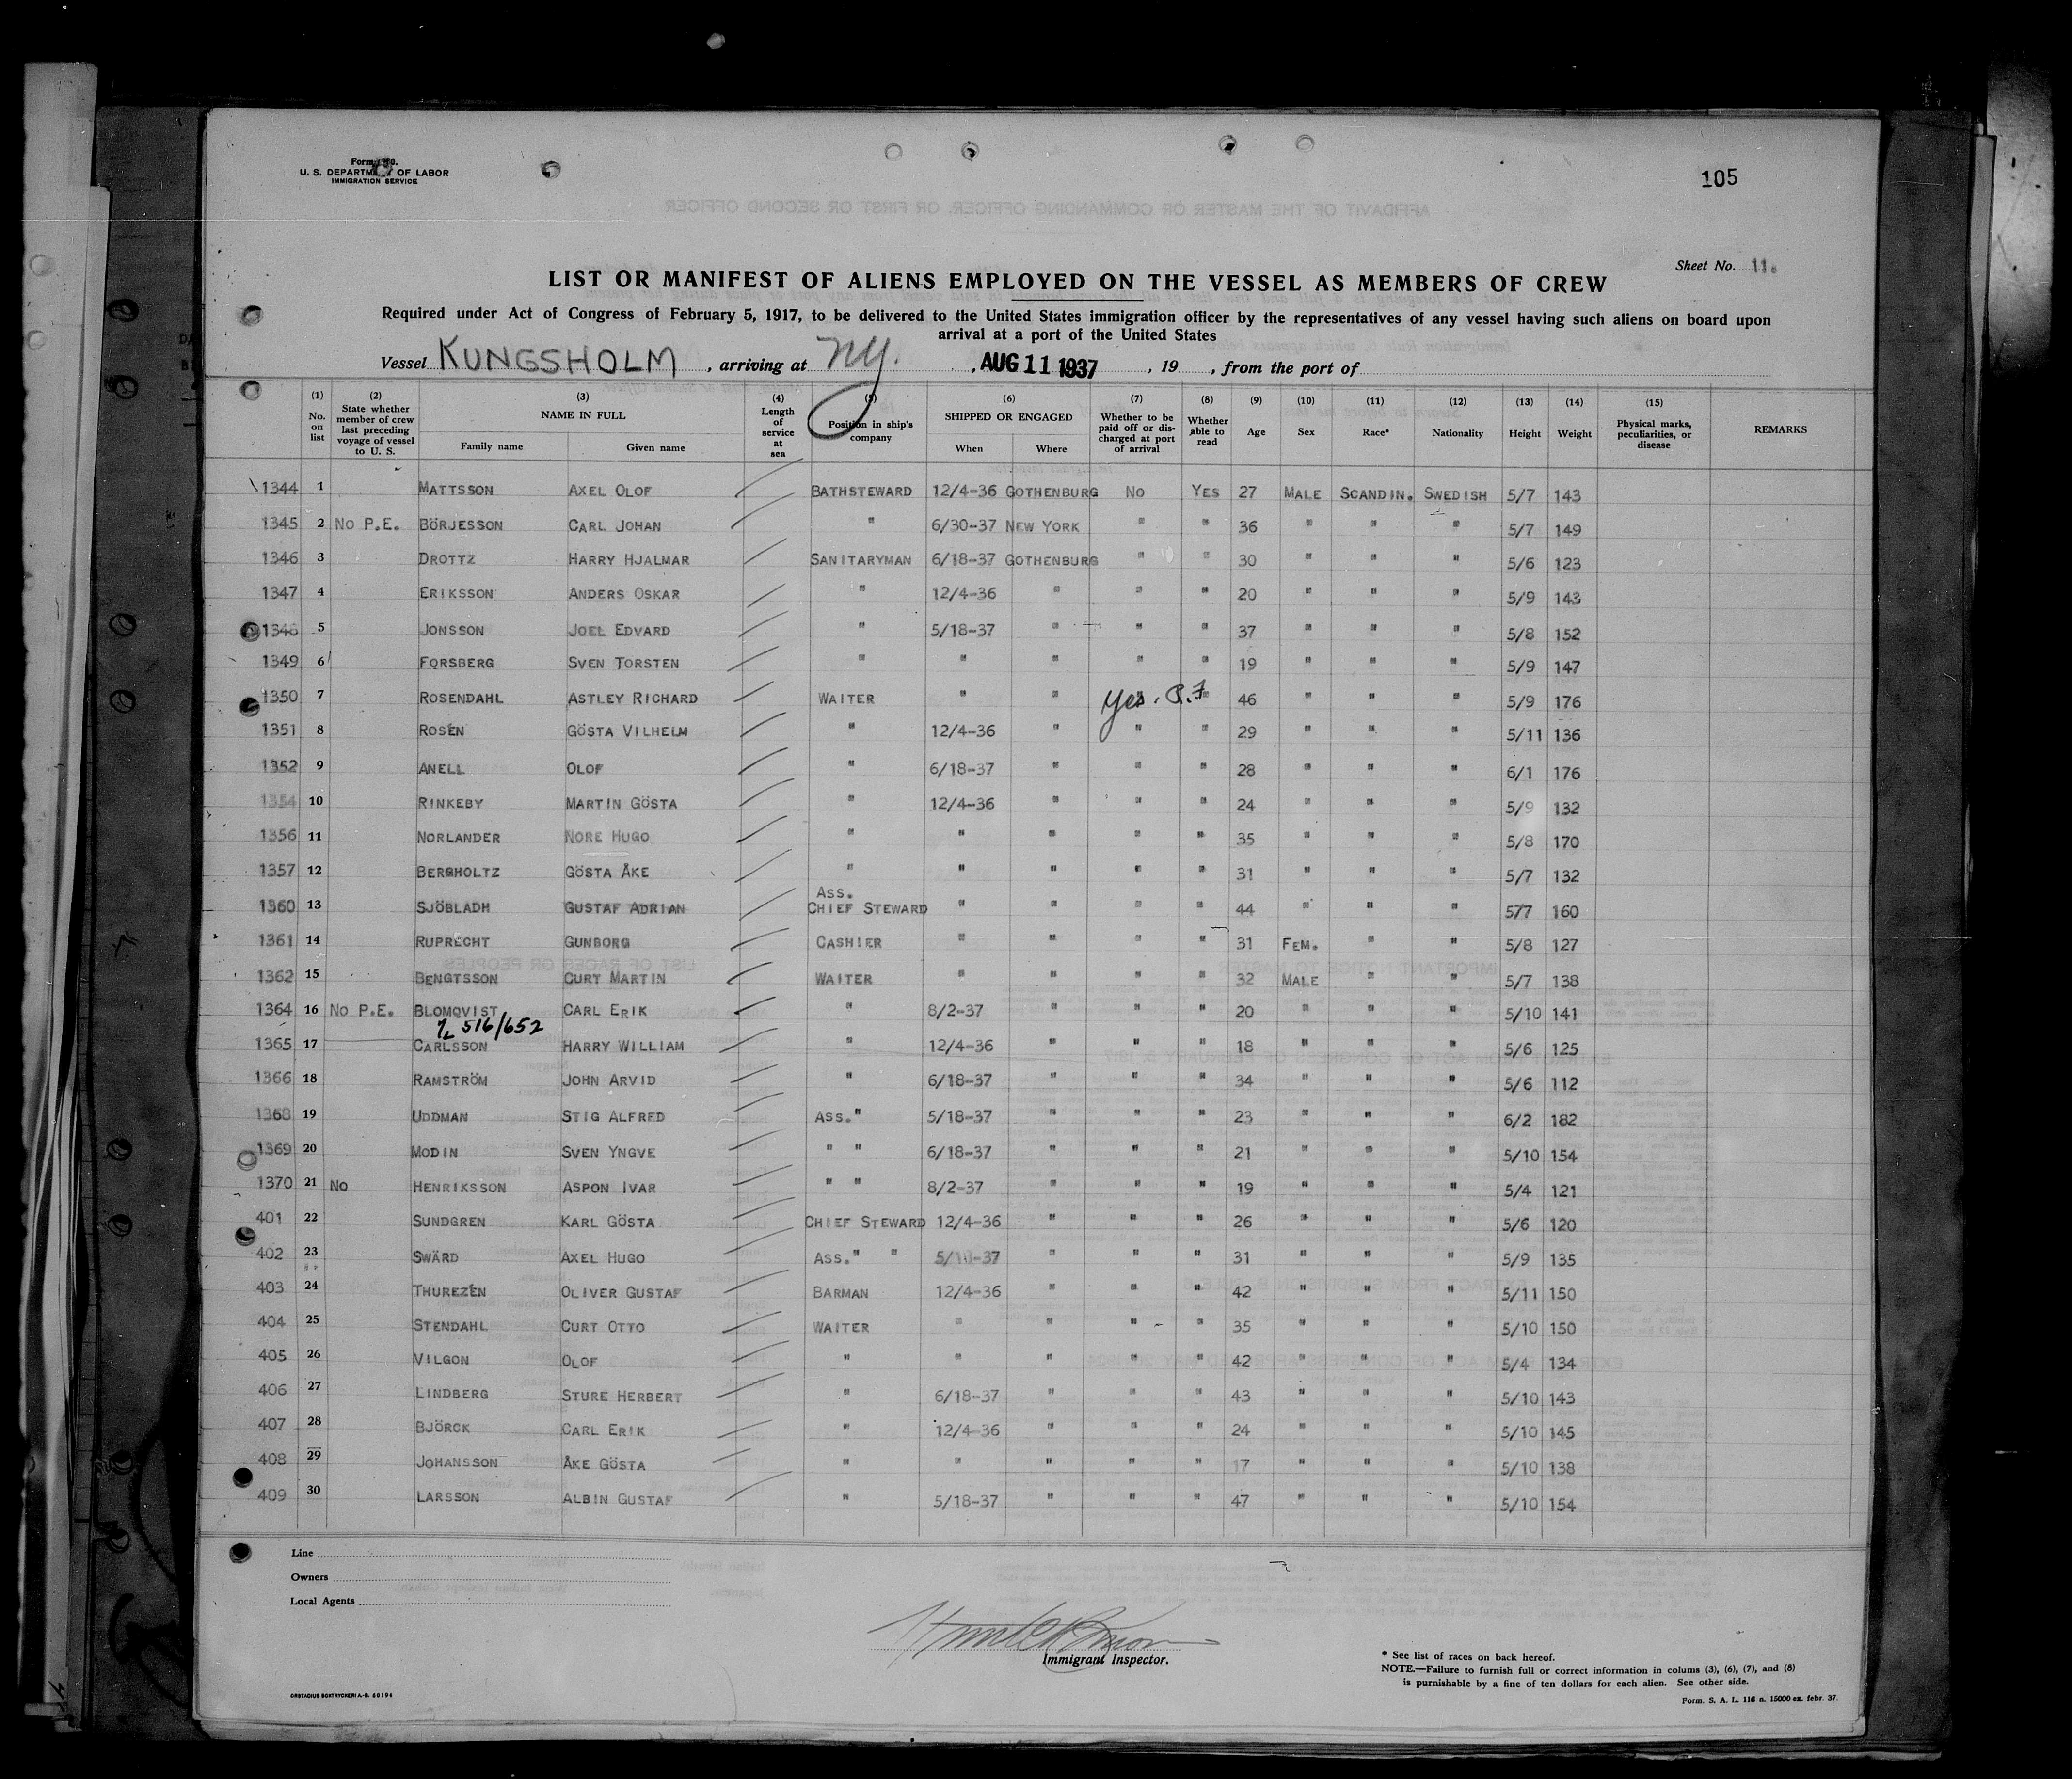 Form 680.
U. S. DEPARTMENT OF LABOR
IMMIGRATION SERVICE
105
Sheet No. 11.
LIST OR MANIFEST OF ALIENS EMPLOYED ON THE VESSEL AS MEMBERS OF CREW
Required under Act of Congress of February 5, 1917, to be delivered to the United States immigration officer by the representatives of any vessel having such aliens on board upon
arrival at a port of the United States
Vessel KUNGSHOLM, arriving at NY., AUG 11 1937, 19 , from the port of
(1) No. on list (2) State whether member of crew last preceding voyage of vessel to U. S. (3) NAME IN FULL Family name Given name (4) Length of service at sea (5) Position in ship's company (6) SHIPPED OR ENGAGED When Where (7) Whether to be paid off or discharged at port of arrival (8) Whether able to read (9) Age (10) Sex (11) Race* (12) Nationality (13) Height (14) Weight (15) Physical marks, peculiarities, or disease REMARKS
1344 1 MATTSSON AXEL OLOF BATHSTEWARD 12/4-36 GOTHENBURG NO YES 27 MALE SCANDIN. SWEDISH 5/7 143
1345 2 NO P.E. BÖRJESSON CARL JOHAN " 6/30-37 NEW YORK " " 36 " " " 5/7 149
1346 3 DROTTZ HARRY HJALMAR SANITARYMAN 6/18-37 GOTHENBURG " " 30 " " " 5/6 123
1347 4 ERIKSSON ANDERS OSKAR " 12/4-36 " " " 20 " " " 5/9 143
1348 5 JONSSON JOEL EDVARD " 5/18-37 " " " 37 " " " 5/8 152
1349 6 FORSBERG SVEN TORSTEN " " " " " 19 " " " 5/9 147
1350 7 ROSENDAHL ASTLEY RICHARD WAITER " " Yes. P.F " 46 " " " 5/9 176
1351 8 ROSÉN GÖSTA VILHELM " 12/4-36 " " " 29 " " " 5/11 136
1352 9 ANELL OLOF " 6/18-37 " " " 28 " " " 6/1 176
1354 10 RINKEBY MARTIN GÖSTA " 12/4-36 " " " 24 " " " 5/9 132
1356 11 NORLANDER NORE HUGO " " " " " 35 " " " 5/8 170
1357 12 BERGHOLTZ GÖSTA ÅKE " " " " " 31 " " " 5/7 132
1360 13 SJÖBLADH GUSTAF ADRIAN ASS. CHIEF STEWARD " " " " 44 " " " 577 160
1361 14 RUPRECHT GUNBORG CASHIER " " " " 31 FEM. " " 5/8 127
1362 15 BENGTSSON CURT MARTIN WAITER " " " " 32 MALE " " 5/7 138
1364 16 NO P.E. BLOMQVIST CARL ERIK " 8/2-37 " " " 20 " " " 5/10 141
516/652
1365 17 CARLSSON HARRY WILLIAM " 12/4-36 " " " 18 " " " 5/6 125
1366 18 RAMSTRÖM JOHN ARVID " 6/18-37 " " " 34 " " " 5/6 112
1368 19 UDDMAN STIG ALFRED ASS." 5/18-37 " " " 23 " " " 6/2 182
1369 20 MODIN SVEN YNGVE " " 6/18-37 " " " 21 " " " 5/10 154
1370 21 NO HENRIKSSON ASPON IVAR " " 8/2-37 " " " 19 " " " 5/4 121
401 22 SUNDGREN KARL GÖSTA CHIEF STEWARD 12/4-36 " " " 26 " " " 5/6 120
402 23 SWÄRD AXEL HUGO ASS." " 5/18-37 " " " 31 " " " 5/9 135
403 24 THUREZÉN OLIVER GUSTAF BARMAN 12/4-36 " " " 42 " " " 5/11 150
404 25 STENDAHL CURT OTTO WAITER " " " " 35 " " " 5/10 150
405 26 VILGON OLOF " " " " " 42 " " " 5/4 134
406 27 LINDBERG STURE HERBERT " 6/18-37 " " " 43 " " " 5/10 143
407 28 BJÖRCK CARL ERIK " 12/4-36 " " " 24 " " " 5/10 145
408 29 JOHANSSON ÅKE GÖSTA " " " " " 17 " " " 5/10 138
409 30 LARSSON ALBIN GUSTAF " 5/18-37 " " " 47 " " " 5/10 154
Line
Owners
Local Agents
Immigrant Inspector.
* See list of races on back hereof.
NOTE.—Failure to furnish full or correct information in colums (3), (6), (7), and (8)
is punishable by a fine of ten dollars for each alien. See other side.
Form. S. A. L. 116 a. 15000 ex. febr. 37.